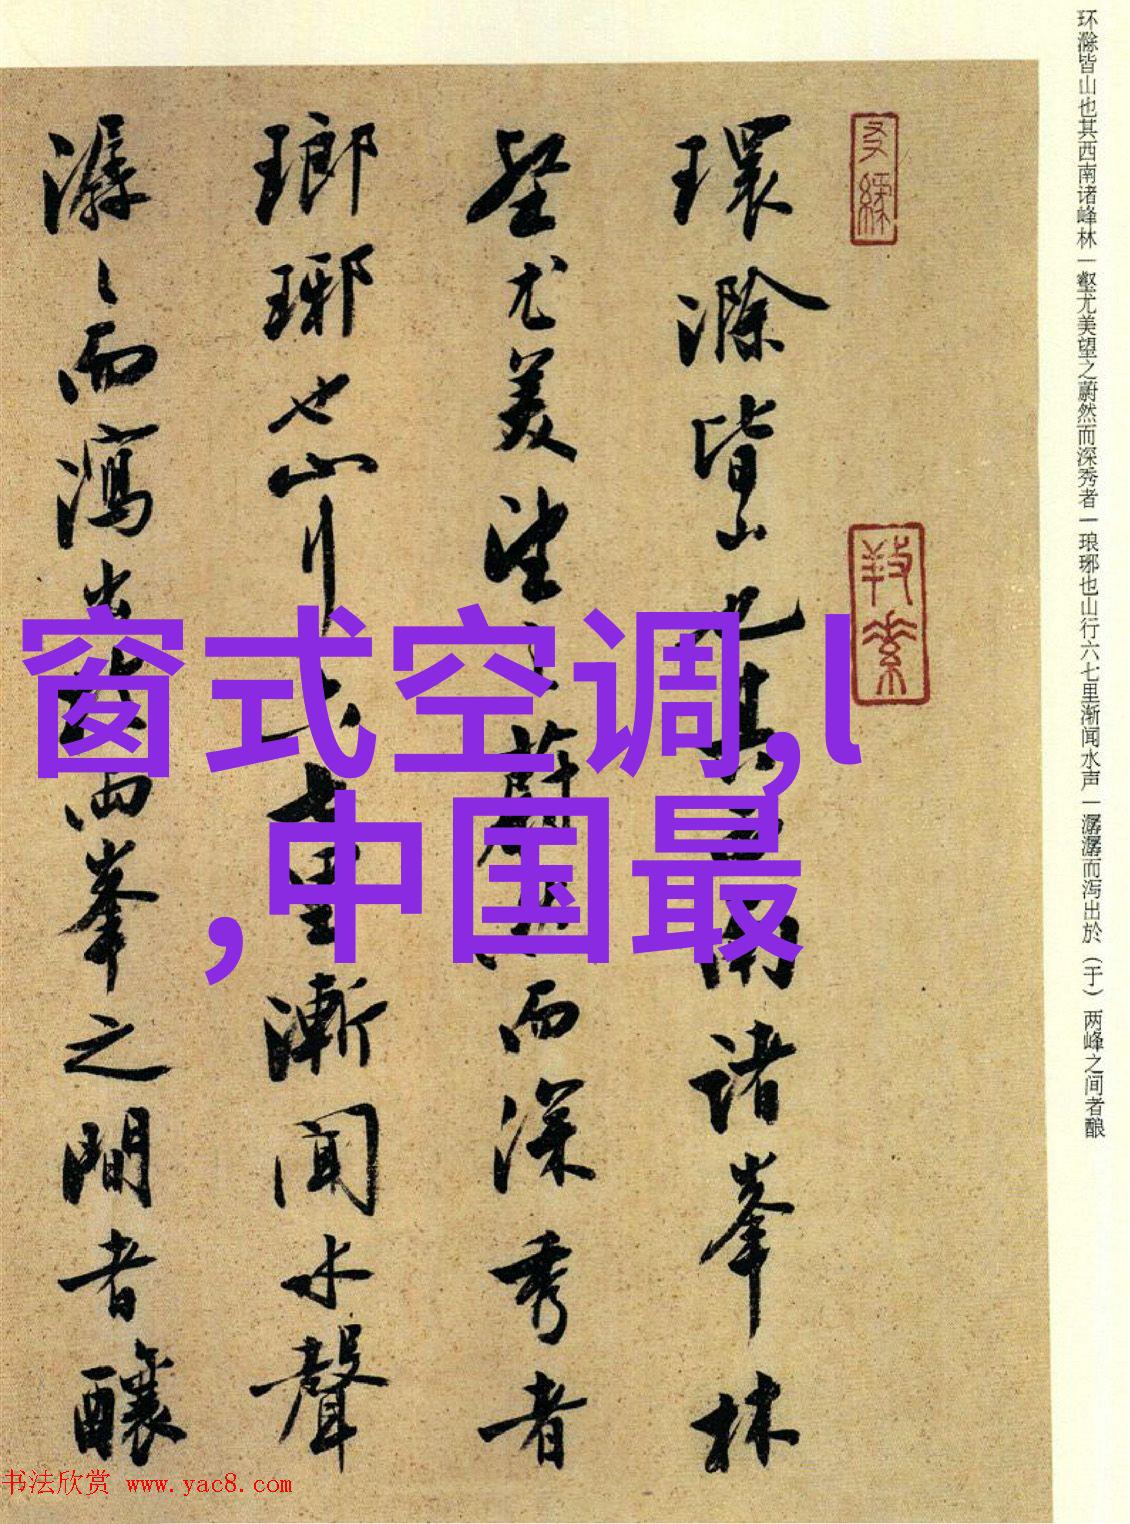 环滁皆山也其西南诸峰林一壑尤美望之蔚然而深秀者一琅琊也山行六七里渐闻水声一潺潺而泻出於(于)两峰之间者酿
環滁皆山也其西南諸峯林
壑尤美望之蔚然而深秀者
瑯琊也山行六七里漸聞水聲
潺〻而瀉出於兩峯之間者釀
窗式空调,l
,中国最
书法欣赏 www.yac8.com